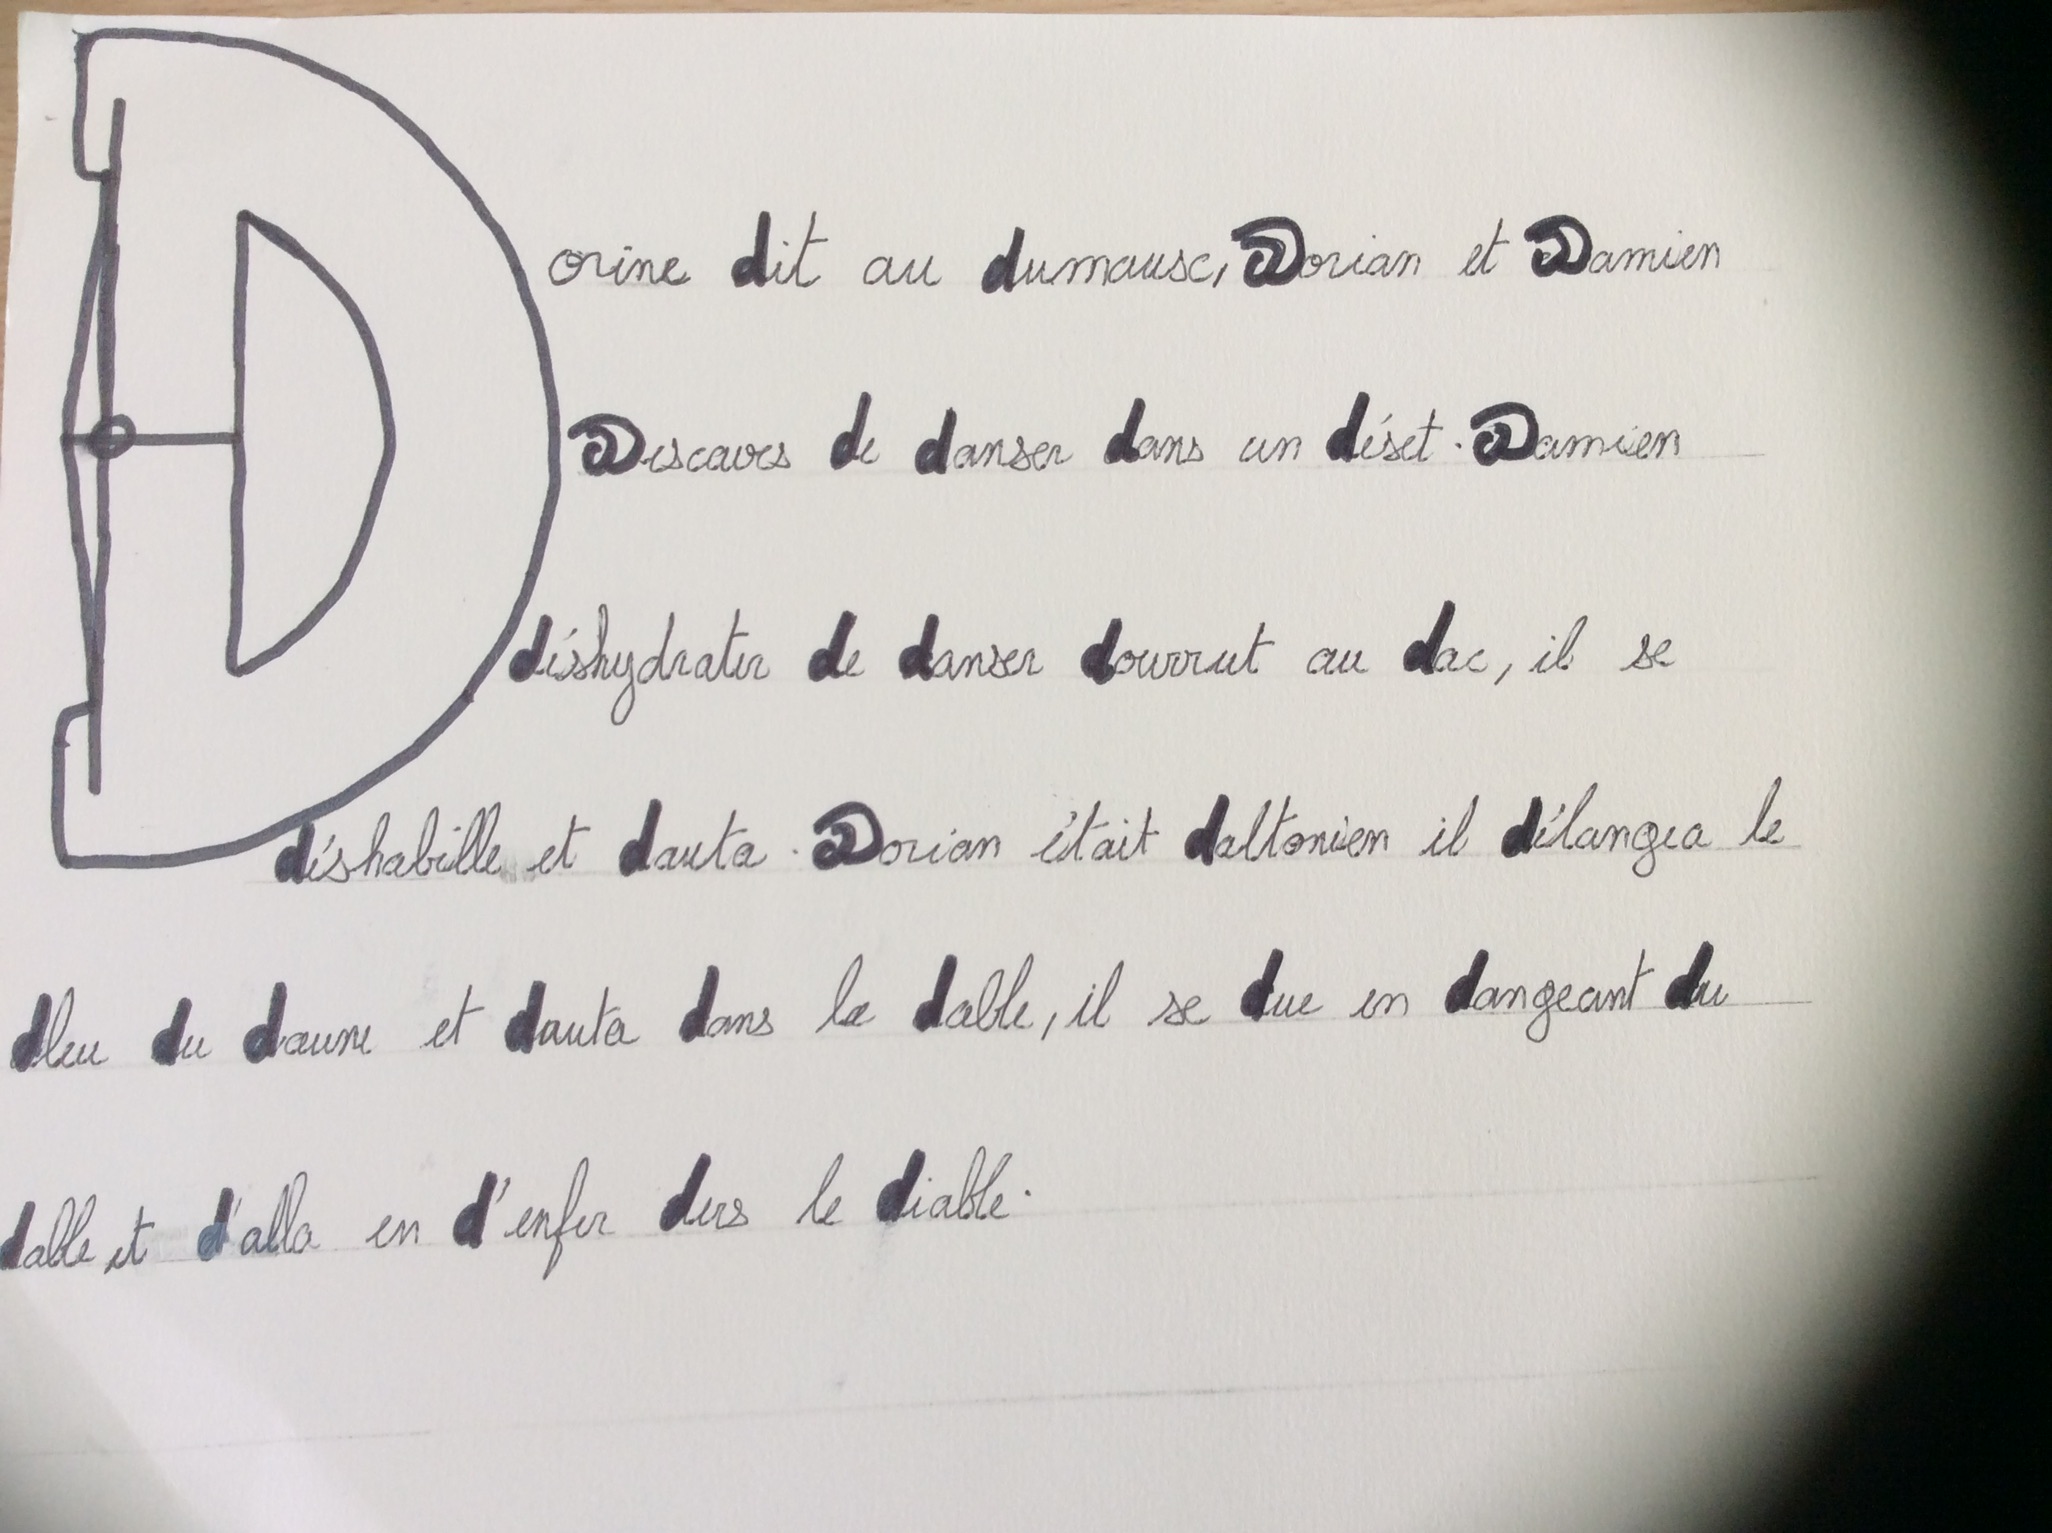 Dorine dit au dumausc, Dorian et Damien
Discours de danser dans un déset. Damien
déshydrater de danser dourrut au dac, il se
déshabille et dauta. Dorian était daltonien il délangea le
dleu du daune et dauta dans le dable, il se due en dangeant du
dable et d'alla en d'enfer ders le diable.